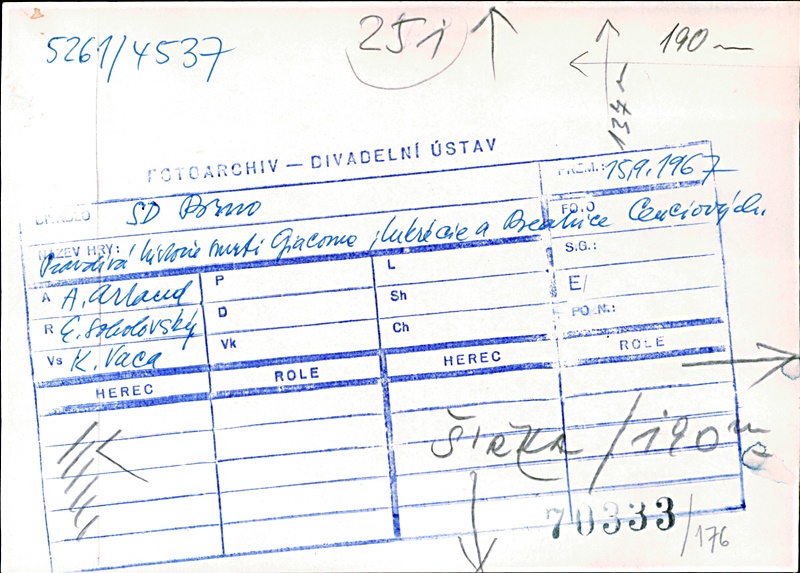 5261/4537
251
190 m
137 m
FOTOARCHIV — DIVADELNÍ ÚSTAV
DIVADLO SD Brno
PREM.: 15.9.1967
NÁZEV HRY: Pravdivá historie smrti Giacoma, Lukrécie a Beatrice Cenciových.
FO.O
S.G.:
E/
PO.N.:
A A. Artaud
R E. Sokolovský
Vs K. Vaca
P
D
Vk
L
Sh
Ch
HEREC ROLE HEREC ROLE
ŠÍŘKA / 190 m
70333/176